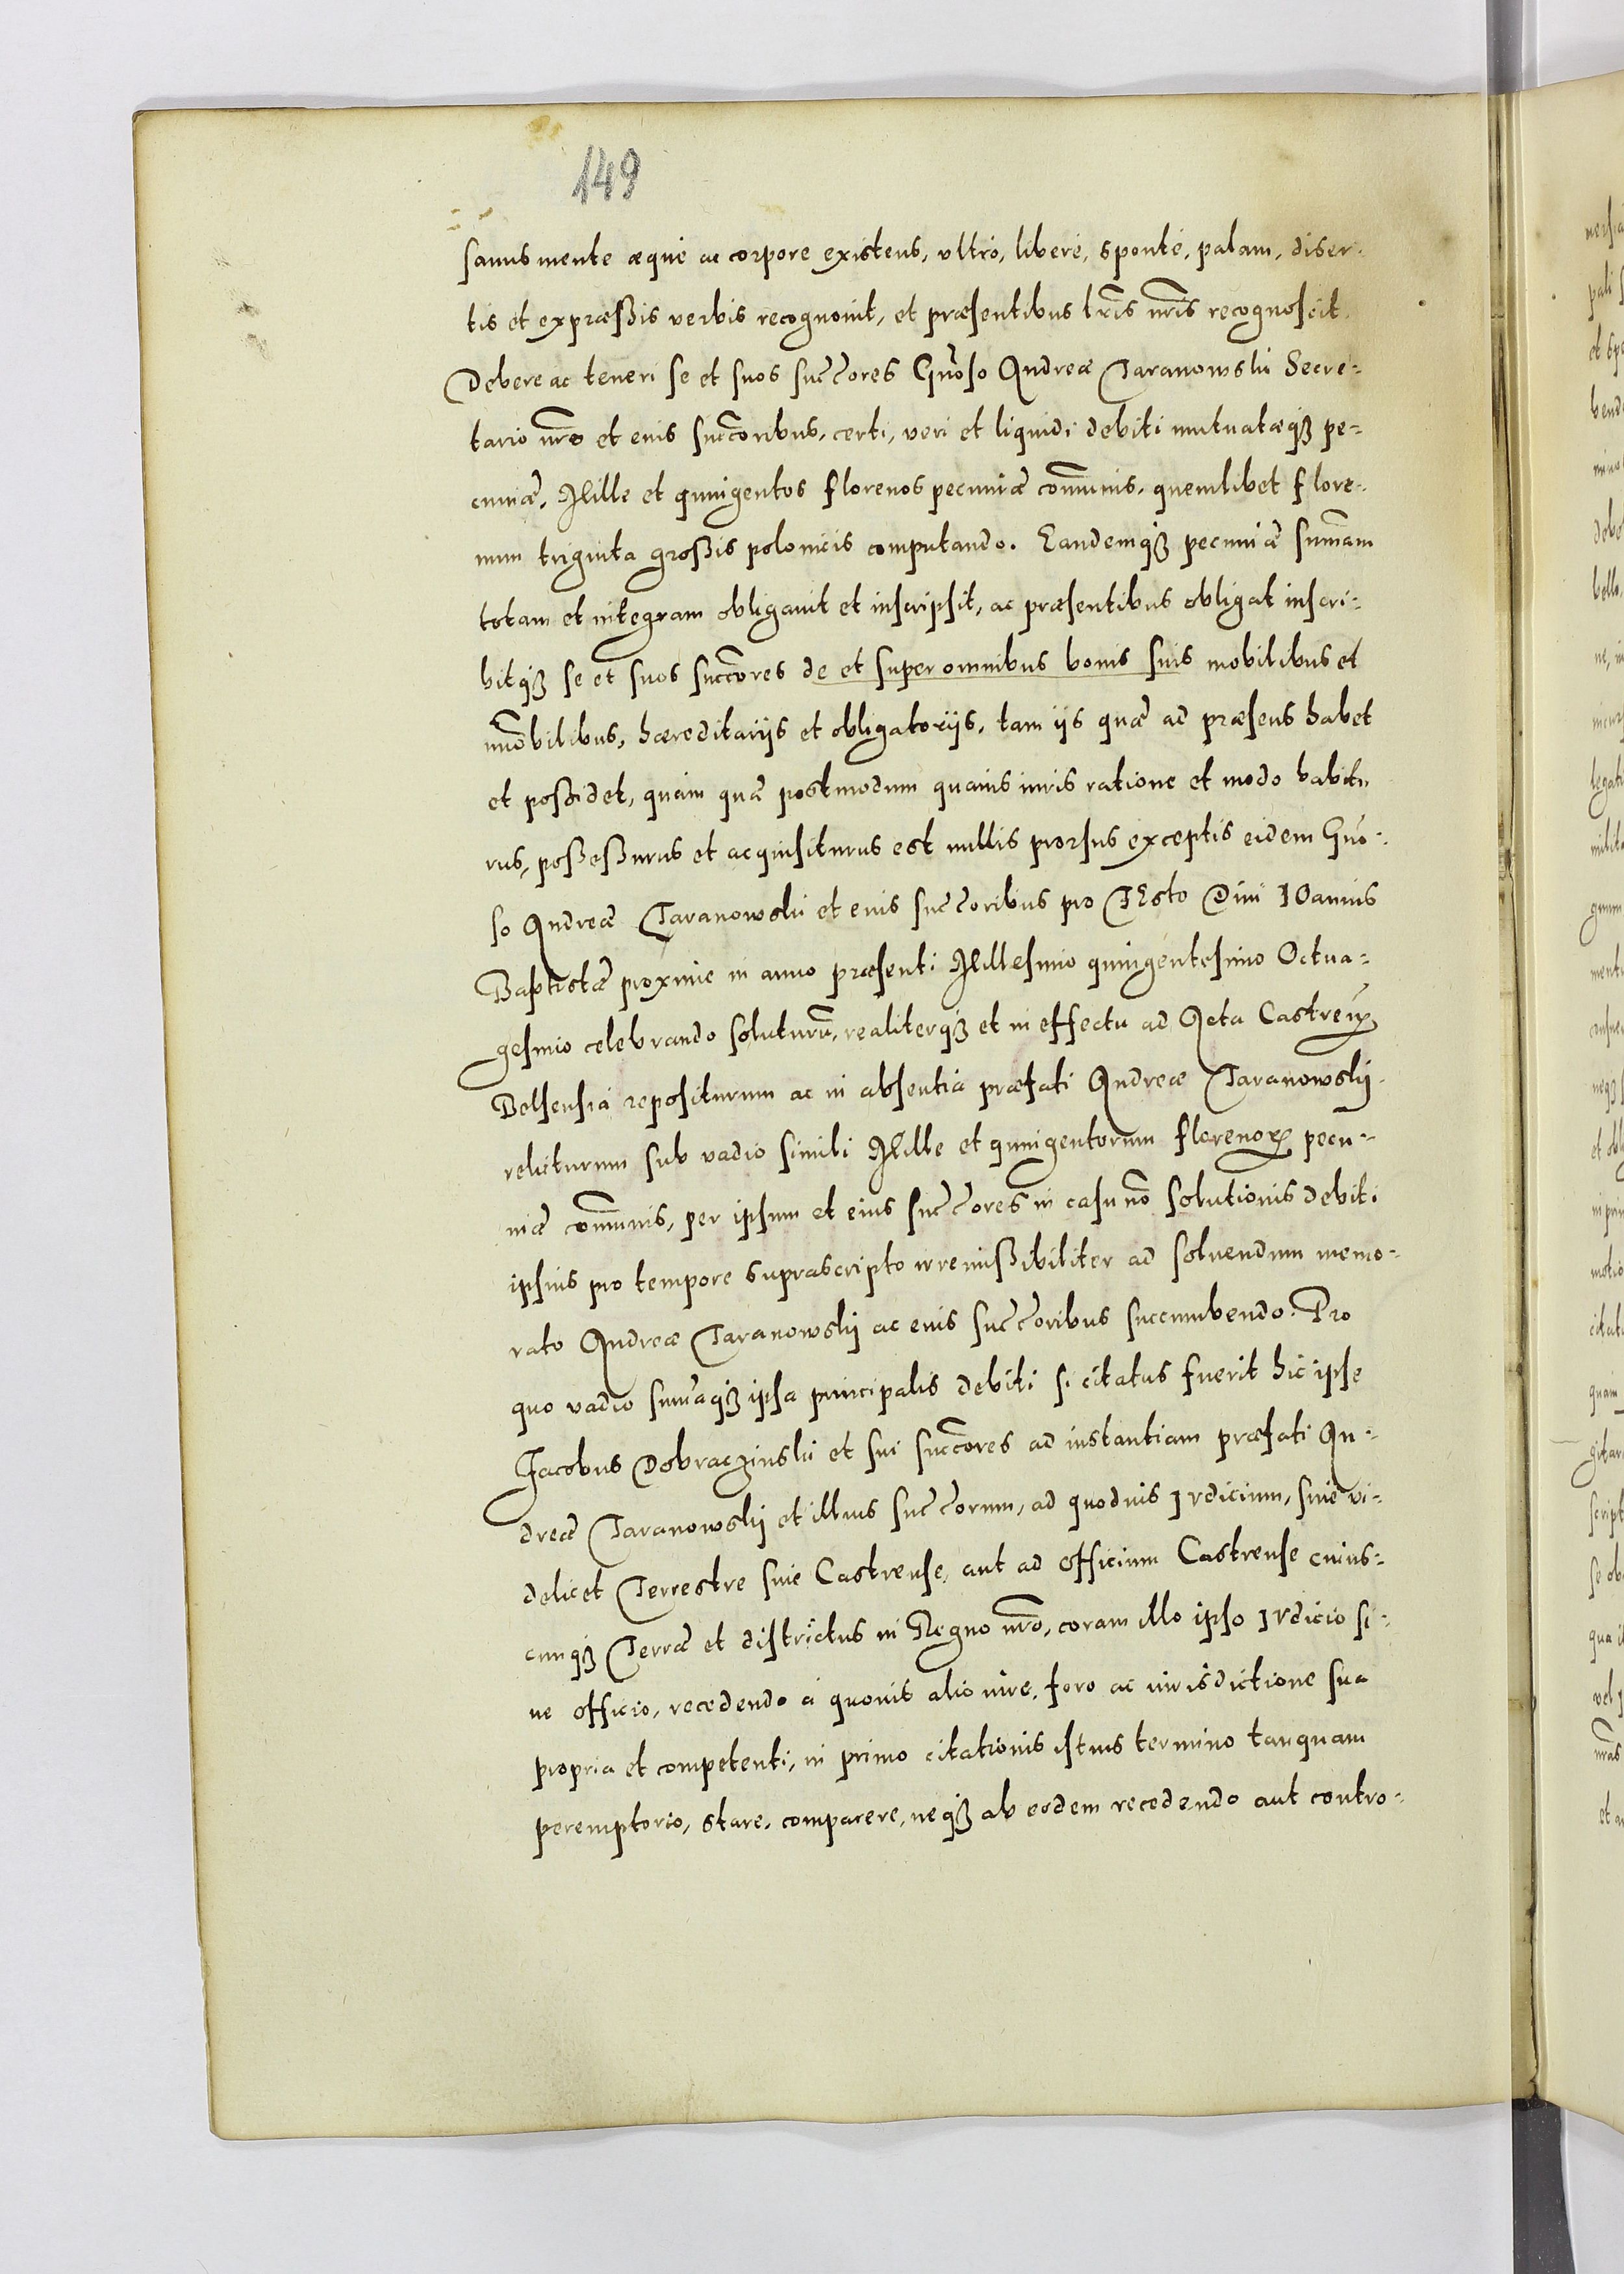 149
sanus mente æque ac corpore existens, vltrò, liberè, spontè, palam, diser-
tis et expræßis verbis recognouit, et præsentibus lr̃is nr̃is recognoscit.
Debere ac teneri se et suos succ̃ores Gn̄oso Andreæ Taranowski Secre-
tario nr̃o et eius succ̃oribus, certi, veri et liquidi debiti mutuatæq₃ pe-
cuniæ, Mille et quingentos florenos pecuniæ com̃unis, quemlibet flore-
num triginta großis polonicis computando. Eandemq₃ pecuniæ sum̃am
totam et integram obligauit et inscripsit, ac præsentibus obligat inscri-
bitq₃ se et suos succ̃ores de et super omnibus bonis suis mobilibus et
im̃obilibus, hæreditarijs et obligatorijs, tam ijs quæ ad præsens habet
et poßidet, quàm quæ postmodum quauis iuris ratione et modo habitu
rus, poßeßurus et acquisiturus est nullis prorsus exceptis eidem Gn̄o-
so Andreæ Taranowski et eius succ̃oribus pro FEsto Diui IOannis
Baptistæ proxime in anno præsenti Millesimo quingentesimo Octua-
gesimo celebrando soluturũ, realiterq₃ et in effectu ad Acta Castreñ
Belsensia repositurum ac in absentia præfati Andreæ Taranowskij
relicturum sub vadio simili Mille et quingentorum florenoꝝ pecu-
niæ com̃unis, per ipsum et eius succ̃ores in casu nõ solutionis debiti
ipsius pro tempore suprascripto irremißibiliter ad soluendum memo-
rato Andreæ Taranowskij ac eius succ̃oribus succumbendo. Pro
quo vadio sum̃aq₃ ipsa principalis debiti si citatus fuerit hic ipse
Jacobus Dobraczinski et sui succ̃ores ad instantiam præfati An-
dreæ Taranowskij et illius succ̃orum, ad quoduis Iudicium, siue vi-
delicet Terrestre siue Castrense, aut ad officium Castrense cuius-
cunq₃ Terræ et districtus in Regno nr̃o, coram illo ipso Iudicio si-
ue officio, recedendo à quouis alio iure, foro ac iurisdictione sua
propria et competenti, in primo citationis istius termino tanquam
peremptorio, stare, comparere, neq₃ ab eodem recedendo aut contro-